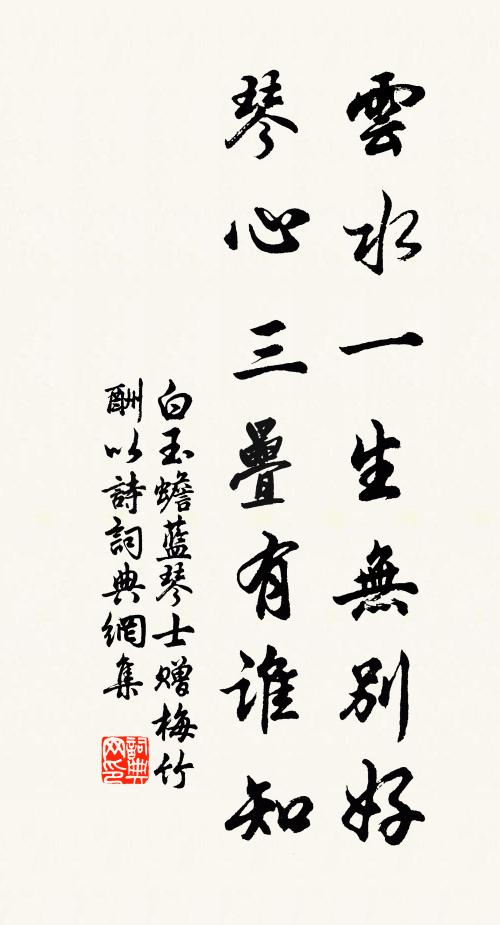 雲水一生無別好
琴心三疊有誰知
白玉蟾藍琴士贈梅竹
酬以詩詞典網集
詞典網印